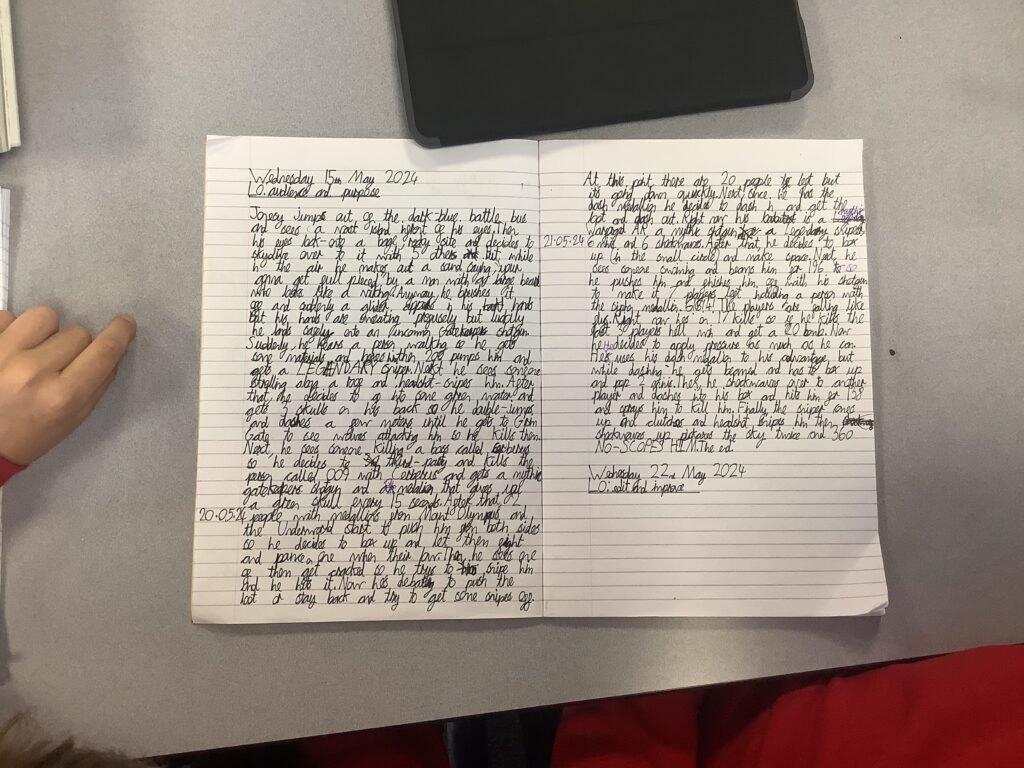 Wednesday 15th May 2024
LO: audience and purpose
Jonesy Jumps out of the dark blue battle bus
and sees a vast island infront of his eyes. Then
his eyes lock onto a boat and decides to
skydive over to it with 5 others but while
in the air he makes out a sand saying your
gonna get full pieced by a man with large beard
who looks like a viking. Anyway he brushes it
off and suddenly a glider appears in his hands
but his hands are sweating profusely but luckily
he lands safely onto an uncommon Gatekeepers shotgun
Suddenly he hears a person walking so he gets
some materials and boxes him, 200 pumps him and
gets a LEGENDARY sniper. Next he sees someone
strolling along a and headshot-snipes him. After
that he decides to go into some green water and
gets 3 skulls on his back so he double-jumps
and dashes a few meters until he gets to Grim
Gate to see wolves attacking him so he kills them
Next, he sees someone killing a boss called cerberus
so he decides to third-party and kills the
person called 009 with Cerberus and gets a mythic
gatekeepers shotgun and a medalion that gives you
a green skull every 15 seconds. After that 2
20.05.24 people with medallions from Mount Olympus and
the Underworld start to push him from both sides
so he decides to box up and let them fight
and pounce on one when their low. Then he sees one
of them get cracked so he tries to snipe him
and he hits it. Now he's debating to push the
loot or stay back and try to get some snipes off.
At this point there are 20 people left but
its going down quickly. Next, since he has the
dash medallion he decides to dash in and get the
loot and dash out. Right now his loadout is a mythic
Warforged AR, a mythic shotgun, a Legendary sniper,
21.05.24 6 minis and 6 shockwaves. After that he decides to box
up (in the small circle) and make space. Next, he
sees someone swinging and beams him for 196 so
he pushes him and finishes him off with his shotgun
to make it players left including a person with
the medallion. 5!6!4! players are falling like
flies. Right now hes on 17 kills so if he kills the
last 3 players hell win and get a 20 bomb. Now
he decides to apply pressure as much as he can.
He uses his dash medallion to his advantage but
while dashing he gets beamed and has to box up
and pop 2 minis. Then, he shockwaves over to another
player and dashes into his box and hits him for 138
and sprays him to kill him. Finally the sniper comes
up and clutches and headshot snipes him then
shockwaves up pickaxes the sky twice and 360
NO-SCOPES HIM. The end.
Wednesday 22nd May 2024
LO: edit and improve